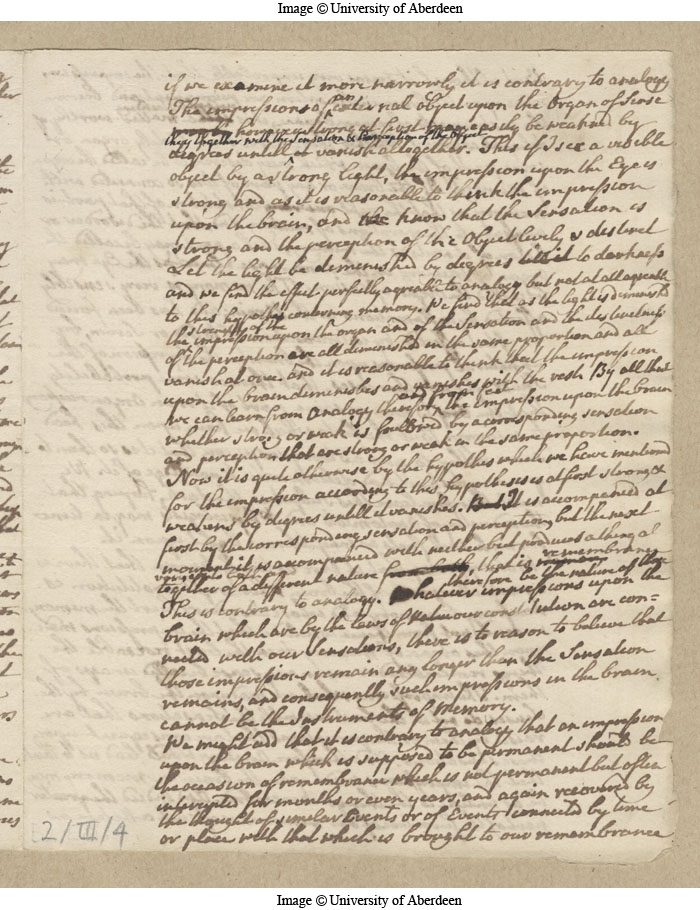 Image © University of Aberdeen
if we examine it more narrowly it is contrary to analogy
The impressions of an external object upon the Organ of Sense
however strong at first may easily be weakned by
they together with the Sensation & Perception of the Object
degrees untill it vanish altogether. Thus if I see a visible
object by a strong light, the impression upon the Eye is
strong and as it is reasonable to think the impression
upon the brain, and we know that the Sensation is
strong and the perception of the Object lively & distinct
Let the light be diminished by degrees till it to darkness
and we find the effect perfectly agreable to analogy but not at all agreable
to this hypothesis concerning memory. We find that as the light is diminished
strength of the
the impression upon the organ and of the Sensation and the distinctness
of the perception are all diminished in the same proportion and all
vanish at once. and it is reasonable to think that the impression
upon the brain diminishes and vanishes with the rest. By all that
we can learn from analogy therefore, the impression upon the brain
whether strong or weak is followed by a corresponding sensation
and perception that are strong or weak in the same proportion.
Now it is quite otherwise by the hypothesis which we have mentioned
for the impression according to this hypotheses is at first strong, &
weakens by degrees untill it vanishes. But It is accompanied at
first by the corresponding sensation and perception, but the next
moment it is accompanied with neither but produces a thing al
together of a different nature that is remembrance
This is contrary to analogy. Whatever therefore be the nature of those
impressions upon the
brain which are by the laws of Nature our constitution are con=
nected with our Sensations, there is to reason to believe that
those impressions remain any longer than the Sensation
remains, and consequently such impressions in the brain
cannot be the Instruments of Memory.
We might add that it is contrary to analogy that an impression
upon the brain which is supposed to be permanent should be
the occasion of remembrance which is not permanent but often
interrupted for months or even years, and again recovered by
the thought of similar Events or of Events connected by time
or place with that which is brought to our remembrance
2/III/4
Image © University of Aberdeen